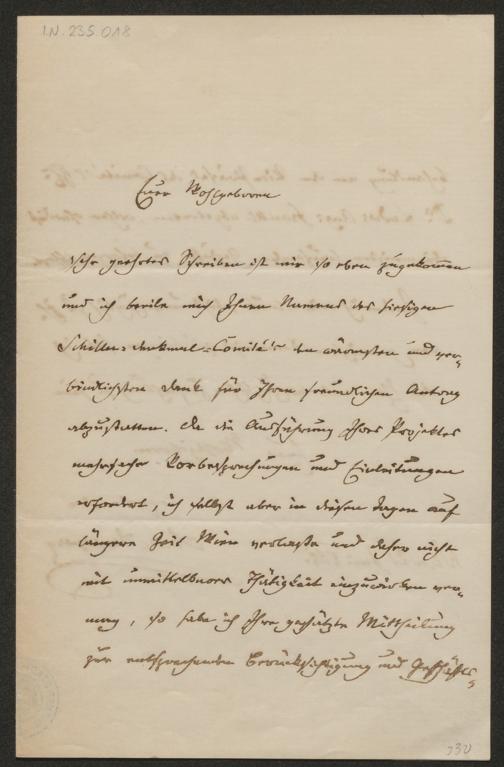 I.N. 235.018
Euer Wohlgeboren
sehr geehrtes Schreiben ist mir so eben zugekommen
und ich beeile mich Ihnen Namens des hiesigen
Schiller-denkmal-Comité's den wärmsten und ver-
bindlichsten Dank für Ihren freundlichen Antrag
abzustatten. Da die Ausführung Ihres Projektes
mehrfache Vorbesprechungen und Einleitungen
erfordert, ich selbst aber in diesen Tagen auf
längere Zeit Wien verlasse und daher nicht
mit unmittelbarer Thätigkeit einzuwirken ver-
mag, so habe ich Ihre geschätzte Mittheilung
zur entsprechenden Berücksichtigung und Geschäfts-